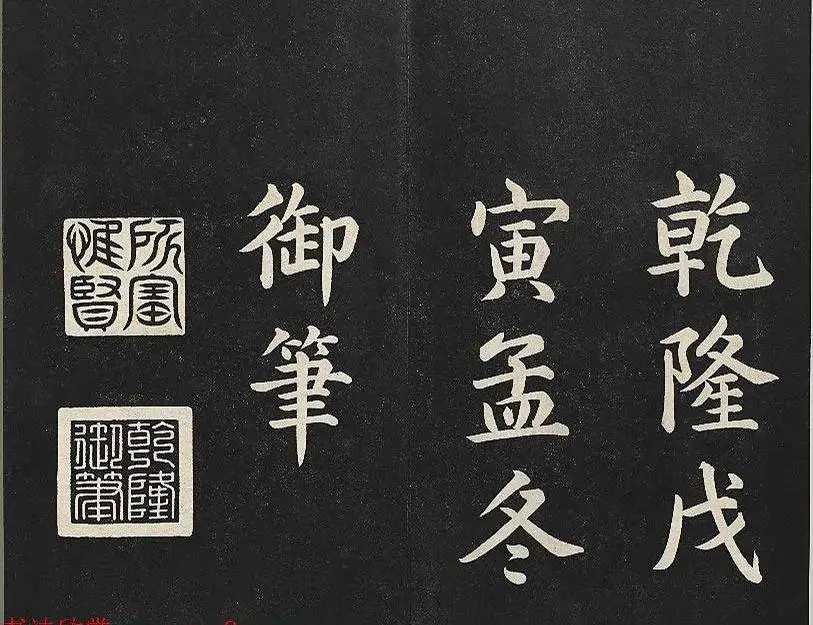 乾隆戊
寅孟冬
御筆
所寶
惟賢
乾隆
御筆